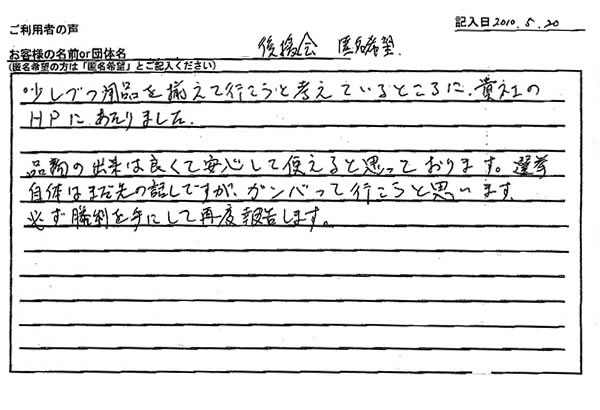 ご利用者の声
記入日 2010.5.20
お客様の名前or団体名 後援会 匿名希望.
(匿名希望の方は「匿名希望」とご記入ください)
少しづつ用品を揃えて行こうと考えているところに、貴社の
HPにあたりました.
品物の出来は良くて安心して使えると思っております。選挙
自体はまだ先の話しですが、ガンバって行こうと思います、
必ず勝利を手にして再度報告します。